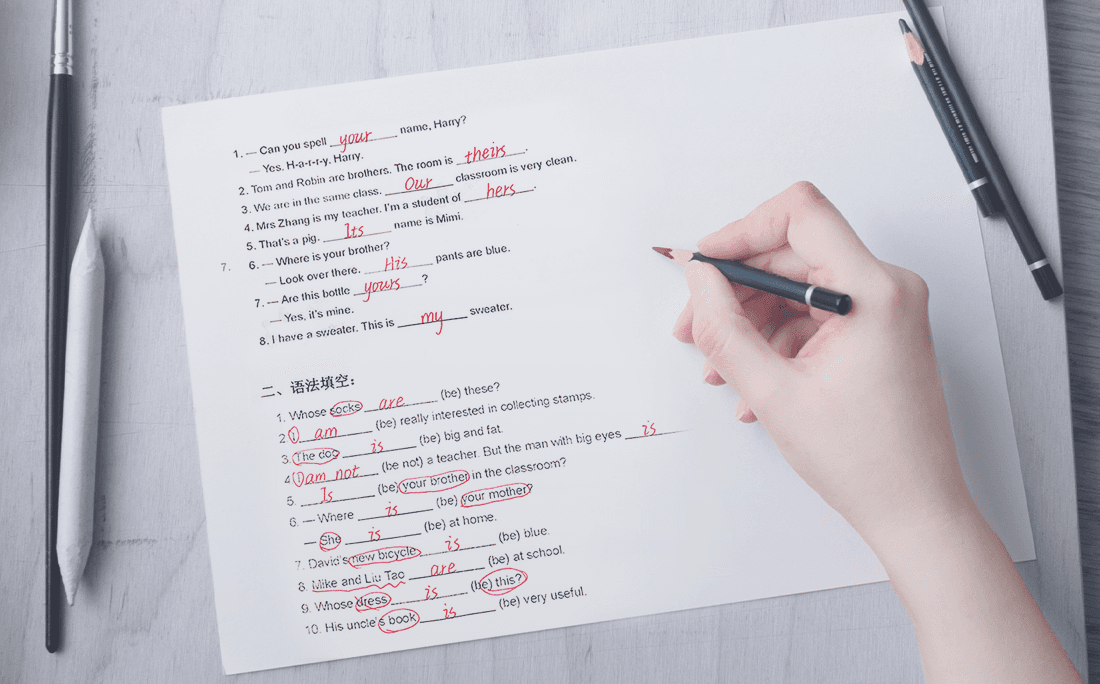 1. — Can you spell your name, Harry?
— Yes. H-a-r-r-y. Harry.
2. Tom and Robin are brothers. The room is theirs.
3. We are in the same class. Our classroom is very clean.
4. Mrs Zhang is my teacher. I'm a student of hers.
5. That's a pig. Its name is Mimi.
7. 6. — Where is your brother?
— Look over there. His pants are blue.
7. — Are this bottle yours?
— Yes, it's mine.
8. I have a sweater. This is my sweater.
二、语法填空：
1. Whose socks are (be) these?
2. I am (be) really interested in collecting stamps.
3. The dog is (be) big and fat.
4. I am not (be not) a teacher. But the man with big eyes is
5. Is (be) your brother in the classroom?
6. — Where is (be) your mother?
— She is (be) at home.
7. David's new bicycle is (be) blue.
8. Mike and Liu Tao are (be) at school.
9. Whose dress is (be) this?
10. His uncle's book is (be) very useful.